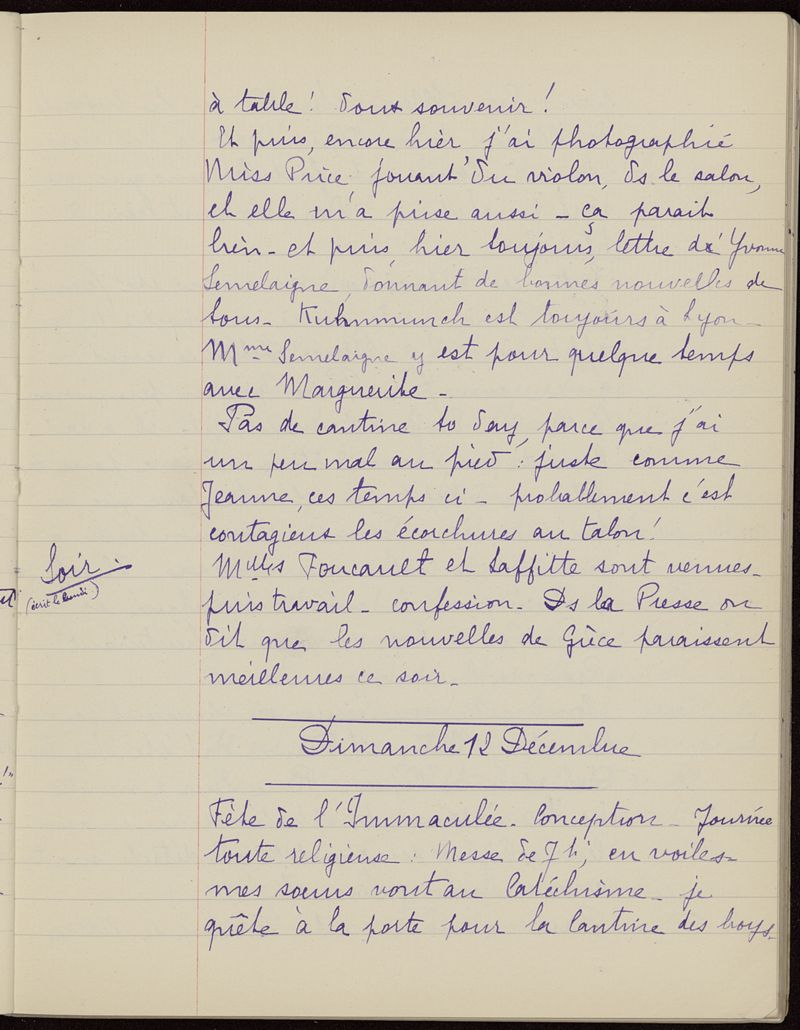 à table! Doux souvenir!
Et puis, encore hier j'ai photographié
Miss Price, jouant du violon, ds le salon,
et elle m'a prise aussi - ça parait
bien - et puis, hier toujours, lettre d'Yvonne
Semelaigne, donnant de bonnes nouvelles de
tous - Kuhnmunch est toujours à Lyon -
Mme Semelaigne y est pour quelque temps
avec Marguerite -
Pas de cantine to day, parce que j'ai
un peu mal au pied : juste comme
Jeanne, ces temps ci - probablement c'est
contagieux les écorchures au talon!
Soir.
(écrit le Lundi)
Mlles Foucault et Laffitte sont venues -
puis travail - confession - Ds la Presse on
dit que les nouvelles de Grèce paraissent
meilleures ce soir -
Dimanche 12 Décembre
Fête de l'Immaculée - Conception - Journée
toute religieuse : Messe de 7h, en voiles -
mes sœurs vont au Catéchisme - je
quête à la porte pour la Cantine des boys -